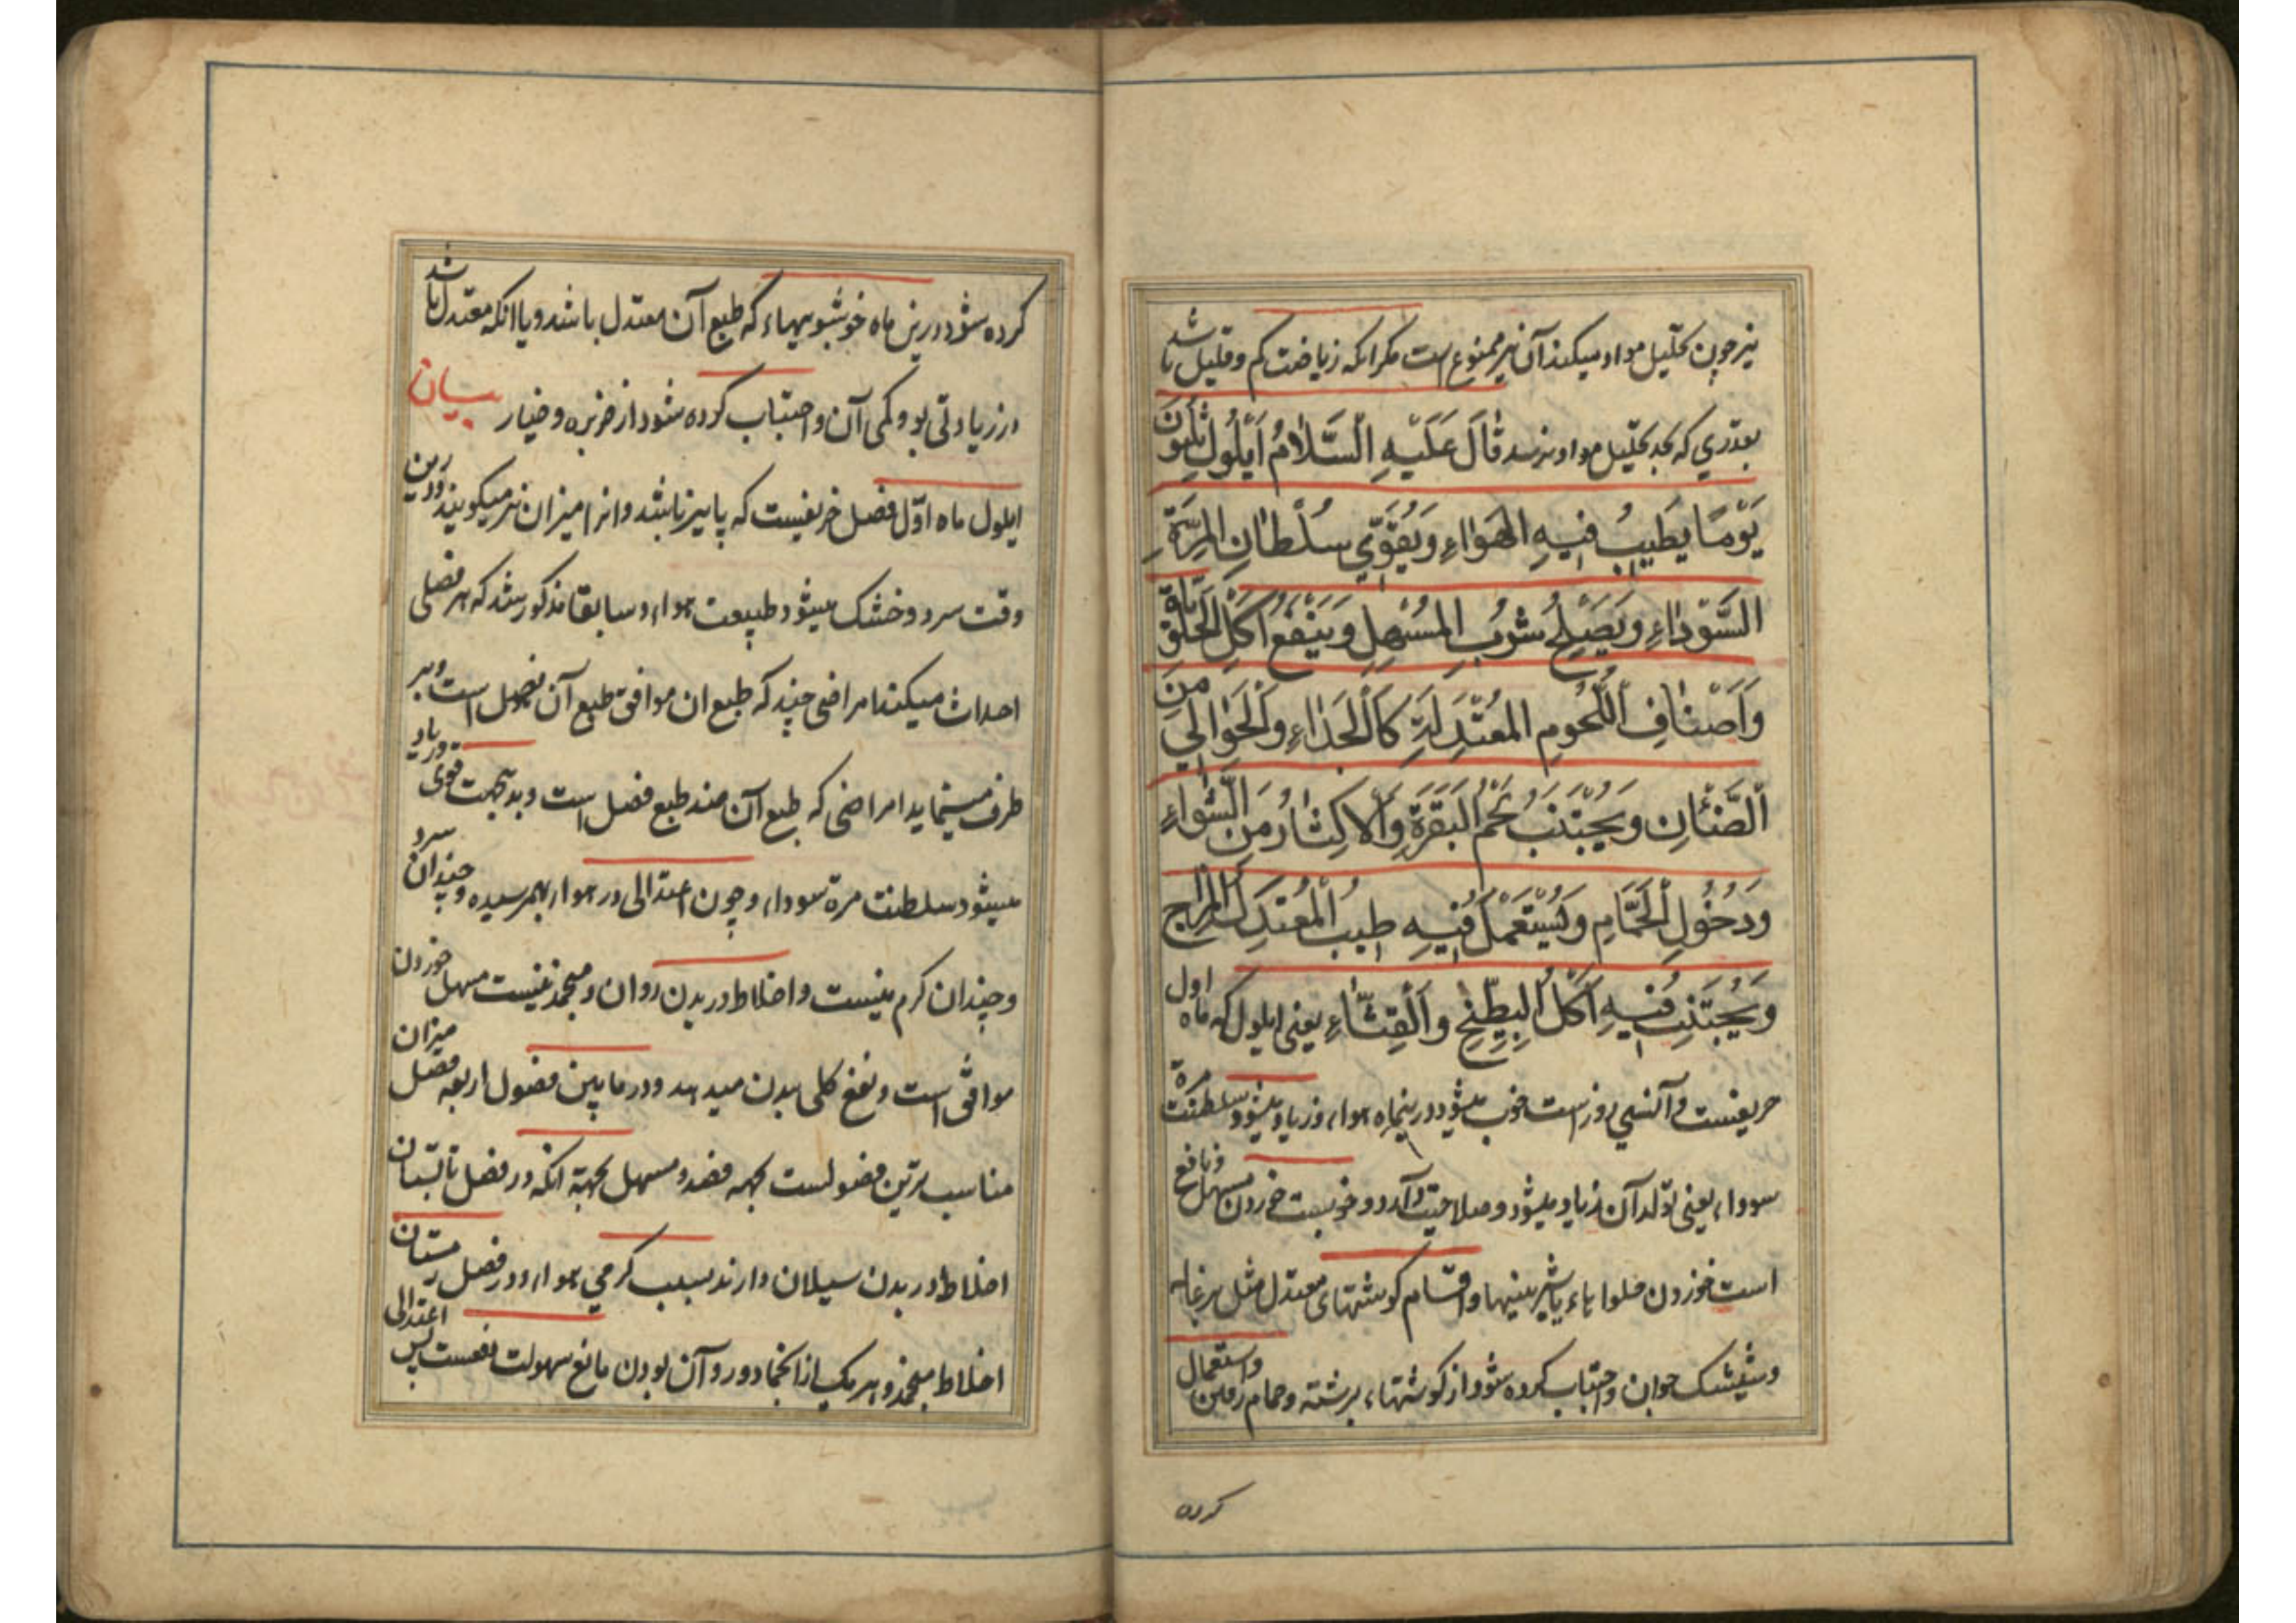 نیز چون تحلیل مواد میکند آن نیز ممنوع است مکر انکه زیاضت کم و قلیل باشد
بقدری که بحد تحلیل مواد نرسد قَالَ عَلَیْهِ السَّلَامُ اَیْلُولُ ثَلٰثُونَ
یَوْمًا یَطِیبُ فِیهِ الهَوٰاءِ وَیُقَوّیِ سُلْطٰانِ المِرَّةِ
السَّوْدٰاءِ وَیَصْلِحُ شُرْبُ المُسْهِلِ وَیَنْفَعُ اَکْلِ الحَلٰاوَةِ
وَاَصْنٰافِ اللُّحُومِ المُعْتَدِلَةِ کَالْجَدٰاءِ وَالْحَوٰالِی مِنَ
الضَّئٰانِ وَیُجْتَنَبُ لَحْمُ البَقَرَةِ وَالْاکِثٰارُ مِنَ الشِّوٰاءِ
وَدُخُولِ الْحَمّٰامِ وَیُسْتَعْمَلُ فِیهِ طِیبُ الْمُعْتَدِلُ المِزٰاج
وَیُجْتَنِبُ فِیهِ اَکْلُ البِطِّیْخِ وَالْقِثّٰاءِ یعنی ایلول که ماه اول
خریفیست و آنسی روز است خوب میشود درینماه هواء و زیاد میشود سلطنت مرة
سوداء یعنی تولد آن زیاد میشود و صلاحیت دارد و خوبست خوردن مسهل و نافع
است خوردن حلواهاء یا شیرینیها و اقسام کوشتهای معتدل مثل بزغاله
و شیشک جوان و اجتناب کرده شود از کوشتهاء برشته و حمام رفتن و استعمال
کرده
کرده شود درین ماه خوشبوییهاء که طبع آن معتدل باشد و یا انکه معتدل باشد
در زیادتی بو و کمی آن و اجتناب کرده شود از خربزه و خیار بیان
ایلول ماه اوّل فصل خریفیست که پاییز باشد و انرا میزان نیز میکویند و درین
وقت سرد و خشک میشود طبیعت هواء و سابقا مذکور شد که هر فصلی
احداث میکند امراضی چند که طبع ان موافق طبع آن فصل است و بر
طرف مینماید امراضی که طبع آن ضد طبع فصل است و بدینجهت قوی و زیاد
میشود سلطنت مرة سوداء و چون اعتدالی در هواء بهمرسیده و چندان سرد
و چندان کرم نیست و اخلاط در بدن روان و منجمد نیست مسهل خوردن
موافق است و نفع کلی ببدن میدهد و در مابین فصول اربعه فصل میزان
مناسب ترین فصولست بجهه فصد و مسهل بجهة انکه در فصل تابستان
اخلاط در بدن سیلان دارند بسبب کرمی هواء و در فصل زمستان
اخلاط منجمد و هر یک از انجماد و روآن بودن مانع سهولت نفعست پس اعتدالی